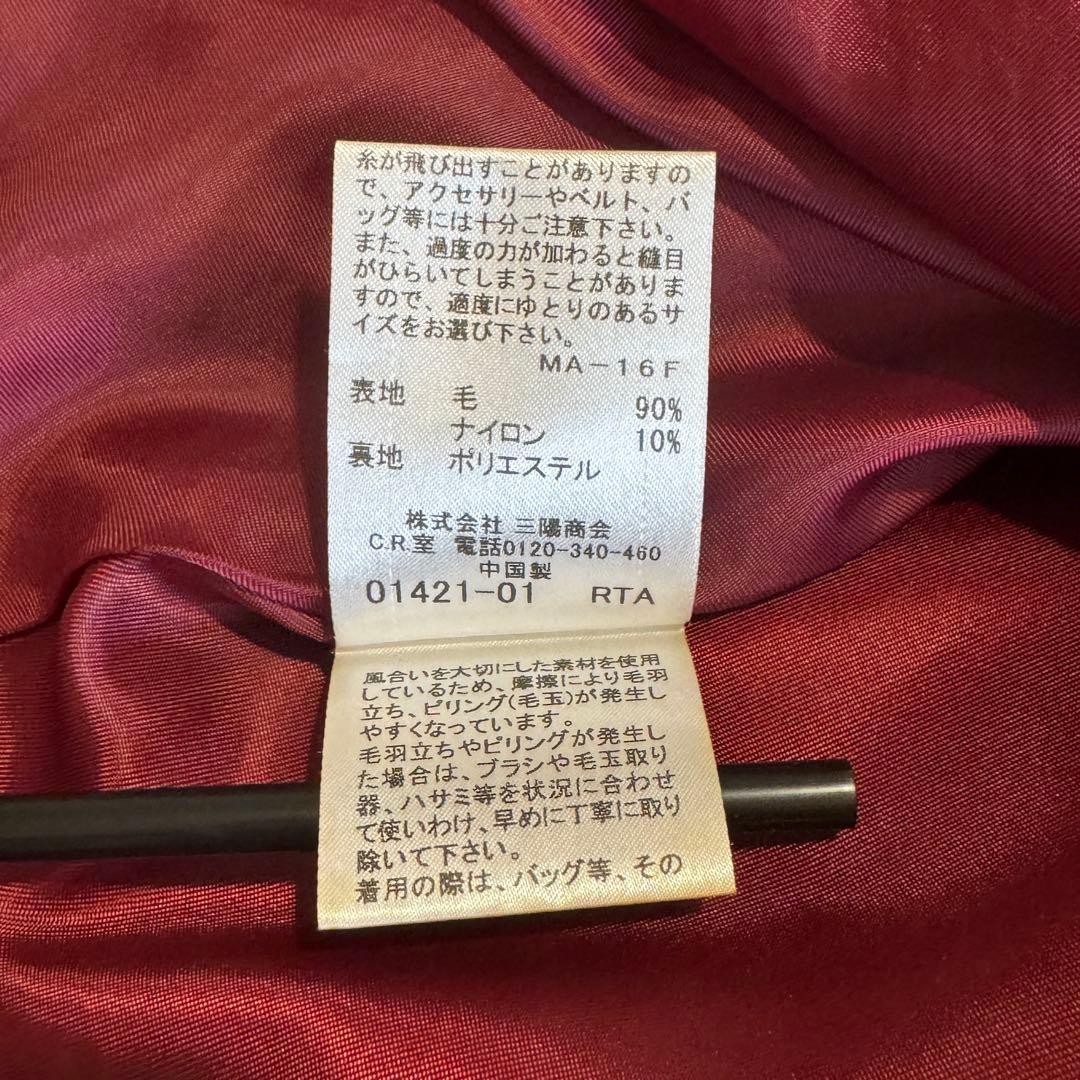 糸が飛び出すことがありますの
で、アクセサリーやベルト、バ
ッグ等には十分ご注意下さい。
また、過度の力が加わると縫目
がひらいてしまうことがありま
すので、適度にゆとりのあるサ
イズをお選び下さい。
MA-16F
表地 毛 90%
ナイロン 10%
裏地 ポリエステル
株式会社 三陽商会
C.R.室 電話0120-340-460
中国製
01421-01 RTA
風合いを大切にした素材を使用
しているため、摩擦により毛羽
立ち、ピリング(毛玉)が発生し
やすくなっています。
毛羽立ちやピリングが発生し
た場合は、ブラシや毛玉取り
器、ハサミ等を状況に合わせ
て使いわけ、早めに丁寧に取り
除いて下さい。
着用の際は、バッグ等、その